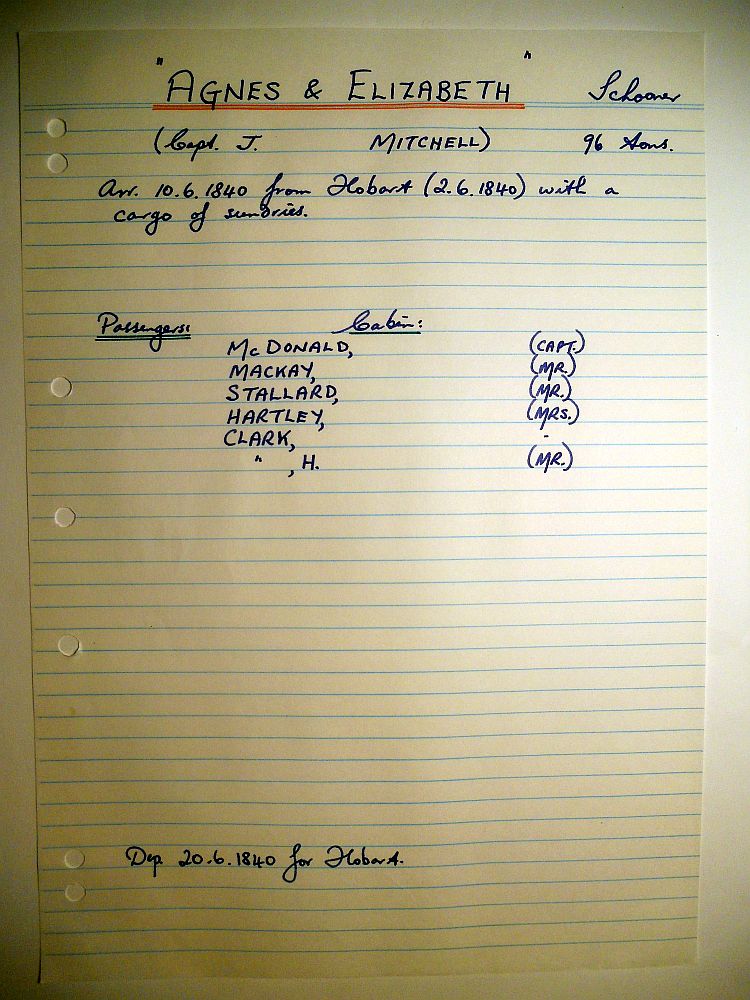 "AGNES & ELIZABETH" Schooner
(Capt. J. MITCHELL) 96 tons.
Arr. 10.6.1840 from Hobart (2.6.1840) with a
cargo of sundries.
Passengers: Cabin:
McDONALD, (CAPT.)
MACKAY, (MR.)
STALLARD, (MR.)
HARTLEY, (MRS.)
CLARK, -
" , H. (MR.)
Dep. 20.6.1840 for Hobart.